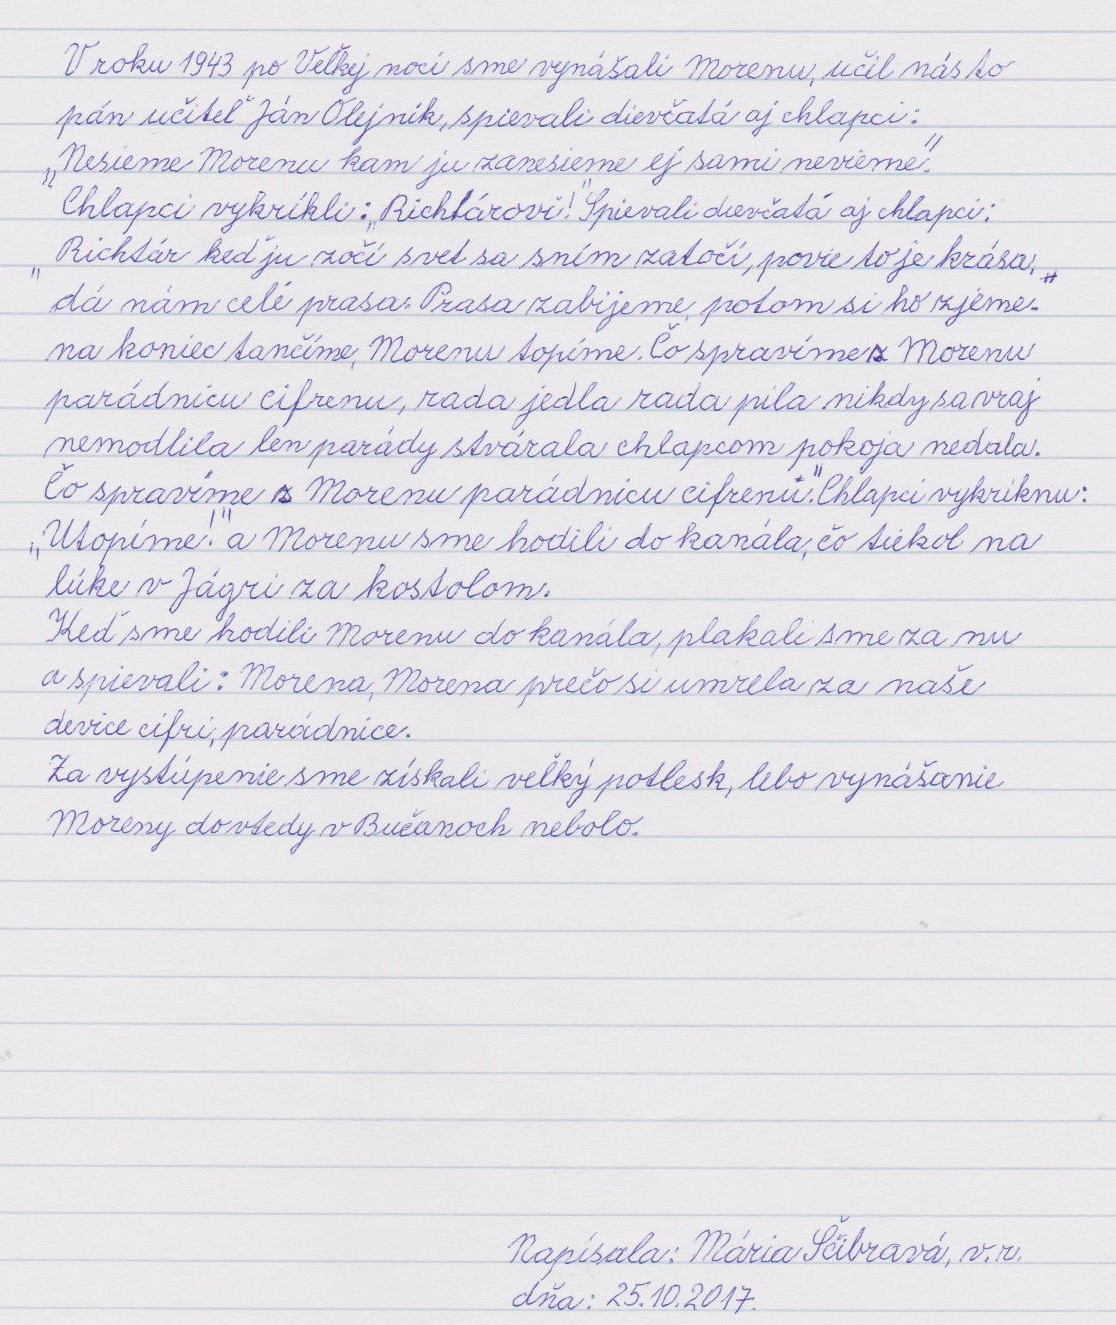 V roku 1943 po Veľkej noci sme vynášali Morenu, učil nás to
pán učiteľ Ján Olejník, spievali dievčatá aj chlapci:
„Nesieme Morenu kam ju zanesieme ej sami nevieme."
Chlapci vykríkli: „Richtárovi!" Spievali dievčatá aj chlapci:
„Richtár keď ju zočí svet sa sním zatočí, povie to je krása,"
dá nám celé prasa. Prasa zabijeme, potom si ho zjeme.
na koniec tančíme, Morenu topíme. Čo spravíme z Morenu
parádnicu cifrenu, rada jedla rada pila nikdy sa vraj
nemodlila len parády stvárala chlapcom pokoja nedala.
Čo spravíme z Morenu parádnicu cifrenu." Chlapci vykríknu:
„Utopíme!" a Morenu sme hodili do kanála, čo tiekol na
lúke v Jágri za kostolom.
Keď sme hodili Morenu do kanála, plakali sme za nu
a spievali: Morena, Morena prečo si umrela za naše
device cifri, parádnice.
Za vystúpenie sme získali veľký potlesk, lebo vynášanie
Moreny dovtedy v Bučanoch nebolo.
Napísala: Mária Ščibravá, v.r.
dňa: 25.10.2017.